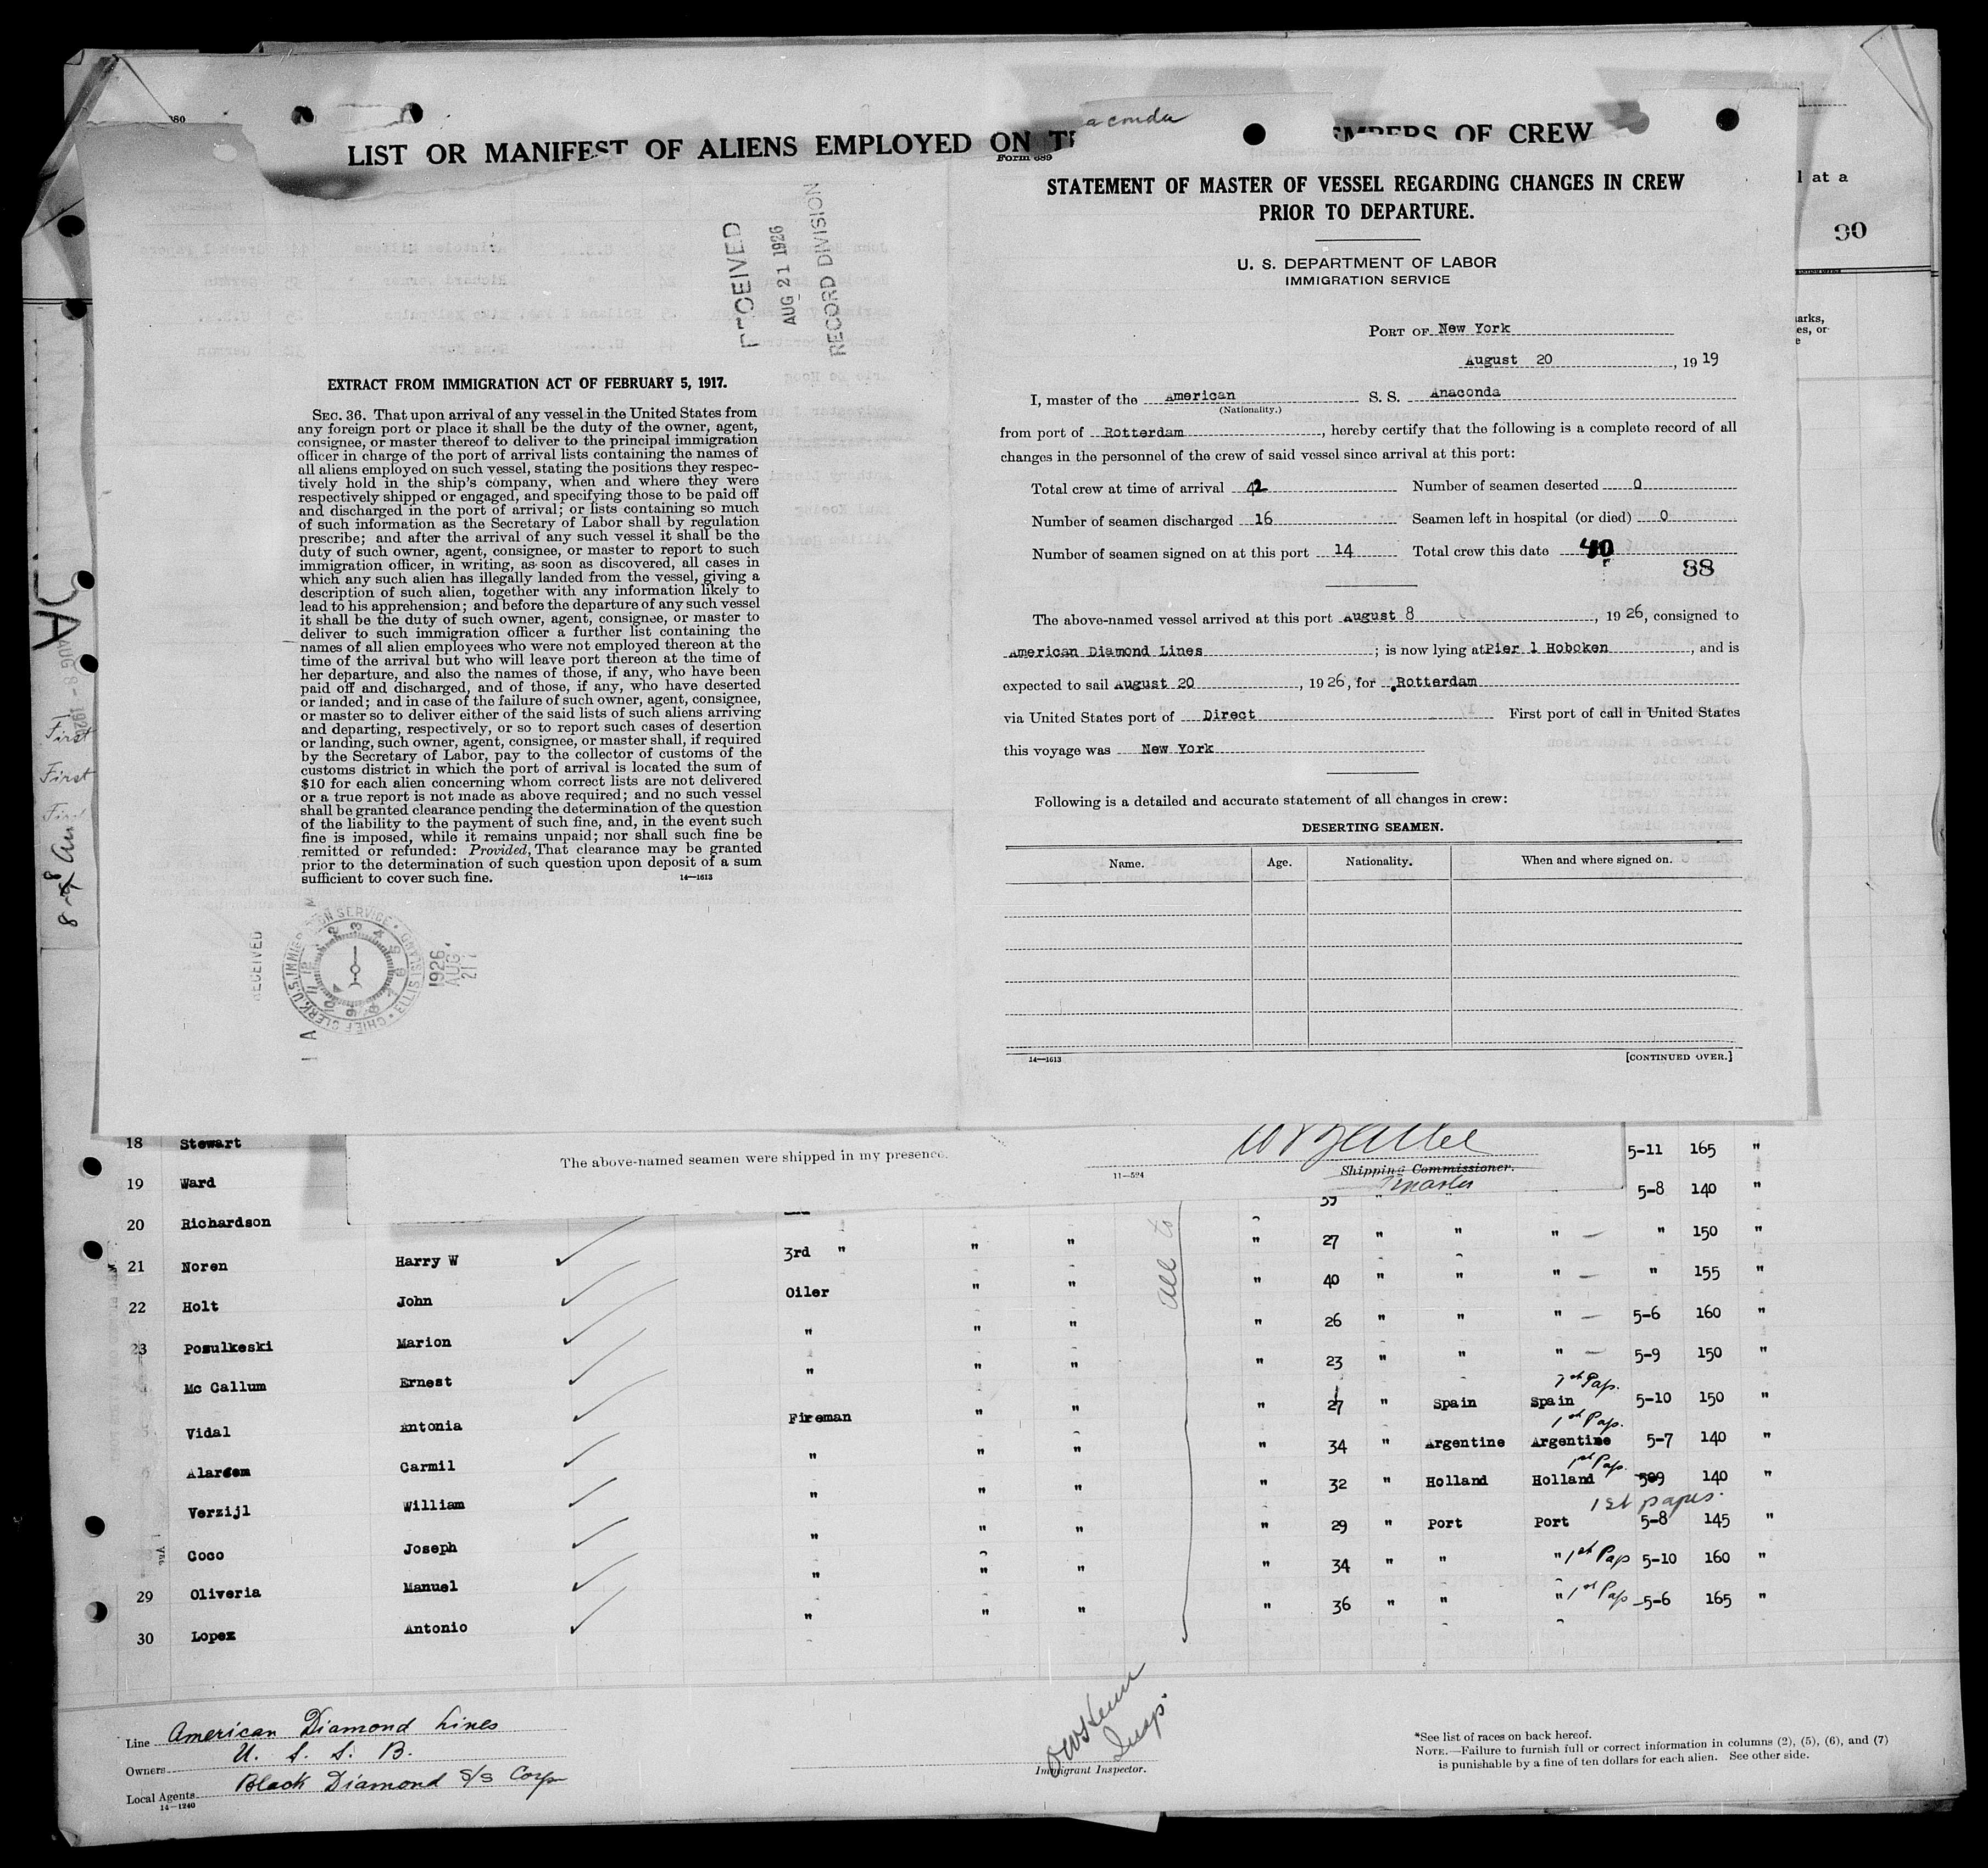 LIST OR MANIFEST OF ALIENS EMPLOYED ON
aconda
OF CREW
l at a
90
RECEIVED
AUG 21 1926
RECORD DIVISION
EXTRACT FROM IMMIGRATION ACT OF FEBRUARY 5, 1917.
SEC. 36. That upon arrival of any vessel in the United States from
any foreign port or place it shall be the duty of the owner, agent,
consignee, or master thereof to deliver to the principal immigration
officer in charge of the port of arrival lists containing the names of
all aliens employed on such vessel, stating the positions they respec-
tively hold in the ship's company, when and where they were
respectively shipped or engaged, and specifying those to be paid off
and discharged in the port of arrival; or lists containing so much
of such information as the Secretary of Labor shall by regulation
prescribe; and after the arrival of any such vessel it shall be the
duty of such owner, agent, consignee, or master to report to such
immigration officer, in writing, as soon as discovered, all cases in
which any such alien has illegally landed from the vessel, giving a
description of such alien, together with any information likely to
lead to his apprehension; and before the departure of any such vessel
it shall be the duty of such owner, agent, consignee, or master to
deliver to such immigration officer a further list containing the
names of all alien employees who were not employed thereon at the
time of the arrival but who will leave port thereon at the time of
her departure, and also the names of those, if any, who have been
paid off and discharged, and of those, if any, who have deserted
or landed; and in case of the failure of such owner, agent, consignee,
or master so to deliver either of the said lists of such aliens arriving
and departing, respectively, or so to report such cases of desertion
or landing, such owner, agent, consignee, or master shall, if required
by the Secretary of Labor, pay to the collector of customs of the
customs district in which the port of arrival is located the sum of
$10 for each alien concerning whom correct lists are not delivered
or a true report is not made as above required; and no such vessel
shall be granted clearance pending the determination of the question
of the liability to the payment of such fine, and, in the event such
fine is imposed, while it remains unpaid; nor shall such fine be
remitted or refunded: Provided, That clearance may be granted
prior to the determination of such question upon deposit of a sum
sufficient to cover such fine.
14—1613
RECEIVED
CHIEF CLERK, U.S. IMMIGRATION SERVICE • ELLIS ISLAND
1926
AUG.
21
Form 689
STATEMENT OF MASTER OF VESSEL REGARDING CHANGES IN CREW
PRIOR TO DEPARTURE.
U. S. DEPARTMENT OF LABOR
IMMIGRATION SERVICE
PORT OF New York
August 20, 19 19
I, master of the American S. S. Anaconda
(Nationality.)
from port of Rotterdam, hereby certify that the following is a complete record of all
changes in the personnel of the crew of said vessel since arrival at this port:
Total crew at time of arrival 42 Number of seamen deserted 0
Number of seamen discharged 16 Seamen left in hospital (or died) 0
Number of seamen signed on at this port 14 Total crew this date 40
38
The above-named vessel arrived at this port August 8, 19 26, consigned to
American Diamond Lines; is now lying at Pier 1 Hoboken, and is
expected to sail August 20, 19 26, for Rotterdam
via United States port of Direct First port of call in United States
this voyage was New York
Following is a detailed and accurate statement of all changes in crew:
DESERTING SEAMEN.
Name. Age. Nationality. When and where signed on.
14—1613 [CONTINUED OVER.]
AUG 8 - 1926
First
First
First
The above-named seamen were shipped in my presence.
11—524
Shipping Commissioner.
Master
18 Stewart 5-11 165 "
19 Ward 39 5-8 140 "
20 Richardson 3rd " " " " 27 " " " — " 150 "
21 Noren Harry W Oiler " " " 40 " " " — " 155 "
22 Holt John " " " " 26 " " " — 5-6 160 "
23 Posulkeski Marion " " " " 23 " " " — 5-9 150 "
Mc Callum Ernest Fireman " " " 27 " Spain Spain 1st Pap. 5-10 150 "
Vidal Antonia " " " " 34 " Argentine Argentine 1st Pap. 5-7 140 "
Alarcem Carmil " " " " 32 " Holland Holland 1st Pap. 509 140 "
Verzijl William " " " " 29 " Port Port 1st papers. 5-8 145 "
Coco Joseph " " " " 34 " " " 1st Pap 5-10 160 "
29 Oliveria Manuel " " " " 36 " " " 1st Pap 5-6 165 "
30 Lopez Antonio
all to
Line American Diamond Lines
Owners U. S. S. B.
Local Agents Black Diamond S/S Corp
14—1240
Insp.
Immigrant Inspector.
*See list of races on back hereof.
NOTE.—Failure to furnish full or correct information in columns (2), (5), (6), and (7)
is punishable by a fine of ten dollars for each alien. See other side.